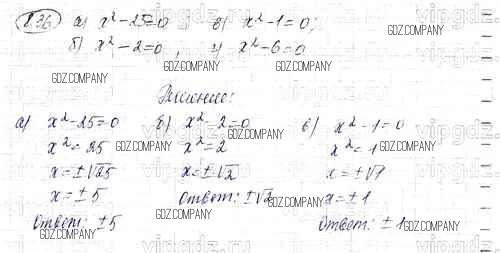 836 а) x²-25=0, в) x²-1=0;
б) x²-2=0, г) x²-6=0
Решение:
а) x²-25=0
x²=25
x=±√25
x=±5
Ответ: ±5
б) x²-2=0
x²=2
x=±√2
Ответ: ±√2
в) x²-1=0
x²=1
x=±√1
x=±1
Ответ: ±1
GDZ.COMPANY
GDZ.COMPANY
GDZ.COMPANY
GDZ.COMPANY
GDZ.COMPANY
GDZ.COMPANY
GDZ.COMPANY
GDZ.COMPANY
GDZ.COMPANY
GDZ.COMPANY
GDZ.COMPANY
vipgdz.ru